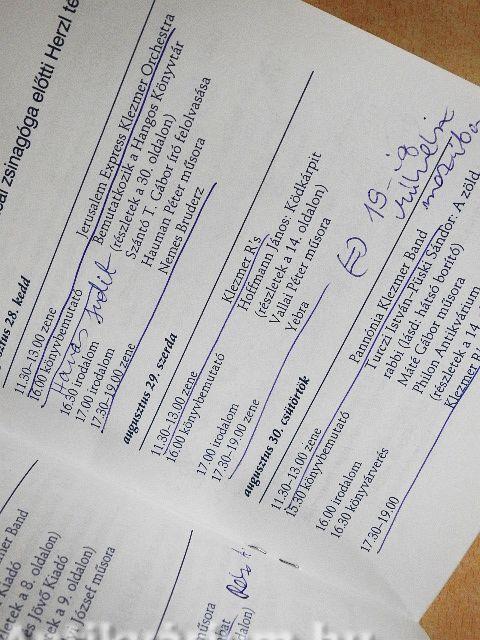 zsinagóga előtti Herzl té
28. kedd
11.30–13.00 zene Jerusalem Express Klezmer Orchestra
16.00 könyvbemutató Bemutatkozik a Hangos Könyvtár
(részletek a 30. oldalon)
16.30 irodalom Szántó T. Gábor író felolvasása
17.00 irodalom Hauman Péter műsora
17.30–19.00 zene Nemes Bruderz
augusztus 29. szerda
11.30–13.00 zene Klezmer R's
16.00 könyvbemutató Hoffmann János: Ködkárpit
(részletek a 14. oldalon)
17.00 irodalom Vallai Péter műsora
17.30–19.00 zene Yebra
19-ig
augusztus 30. csütörtök
11.30–13.00 zene Pannónia Klezmer Band
15.30 könyvbemutató Turczi István–Püski Sándor: A zöld
rabbi (lásd: hátsó borító)
16.00 irodalom Máté Gábor műsora
16.30 könyvárverés Philon Antikvárium
(részletek a 14.
17.30–19.00 Klezmer R
mer Band
Kiadó
zletek a 8. oldalon)
es Jövő Kiadó
etek a 9. oldalon)
József műsora
műsora